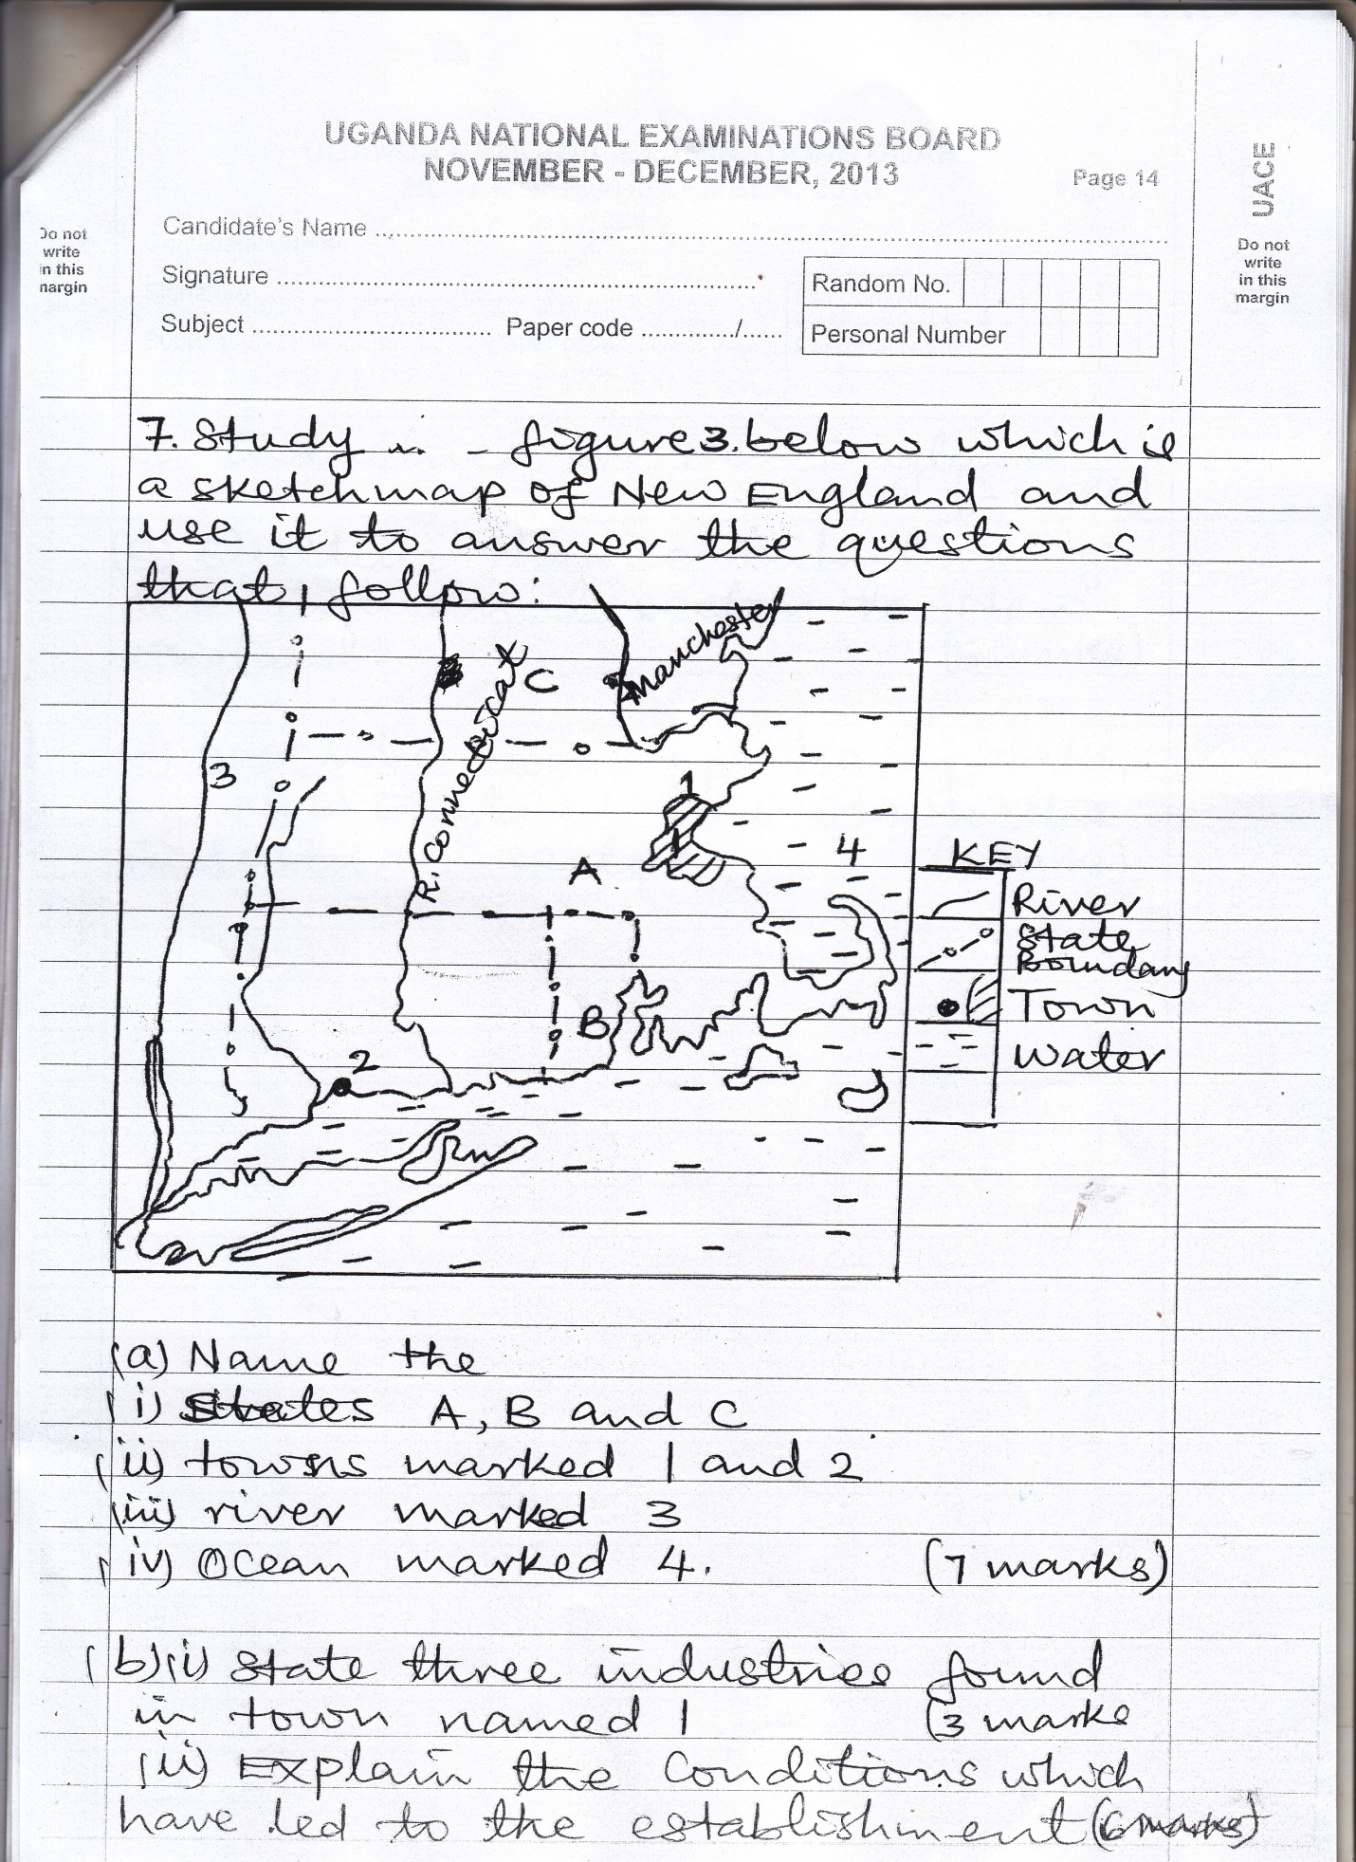 UGANDA NATIONAL EXAMINATIONS BOARD
NOVEMBER - DECEMBER, 2013
Page 14
UACE
Do not
write
in this
margin
Candidate's Name
Signature
Random No.
Subject Paper code /
Personal Number
Do not
write
in this
margin
7. Study ... - figure 3. below which is
a sketch map of New England and
use it to answer the questions
that follow:
Manchester
C
R. Connecticat
3
1
4
A
B
2
KEY
River
State
Boundary
Town
Water
(a) Name the
(i) States A, B and C
(ii) towns marked 1 and 2
(iii) river marked 3
(iv) Ocean marked 4. (7 marks)
(b)(i) State three industries found
in town named 1 (3 marks
(ii) Explain the Conditions which
have led to the establishment (6 marks)